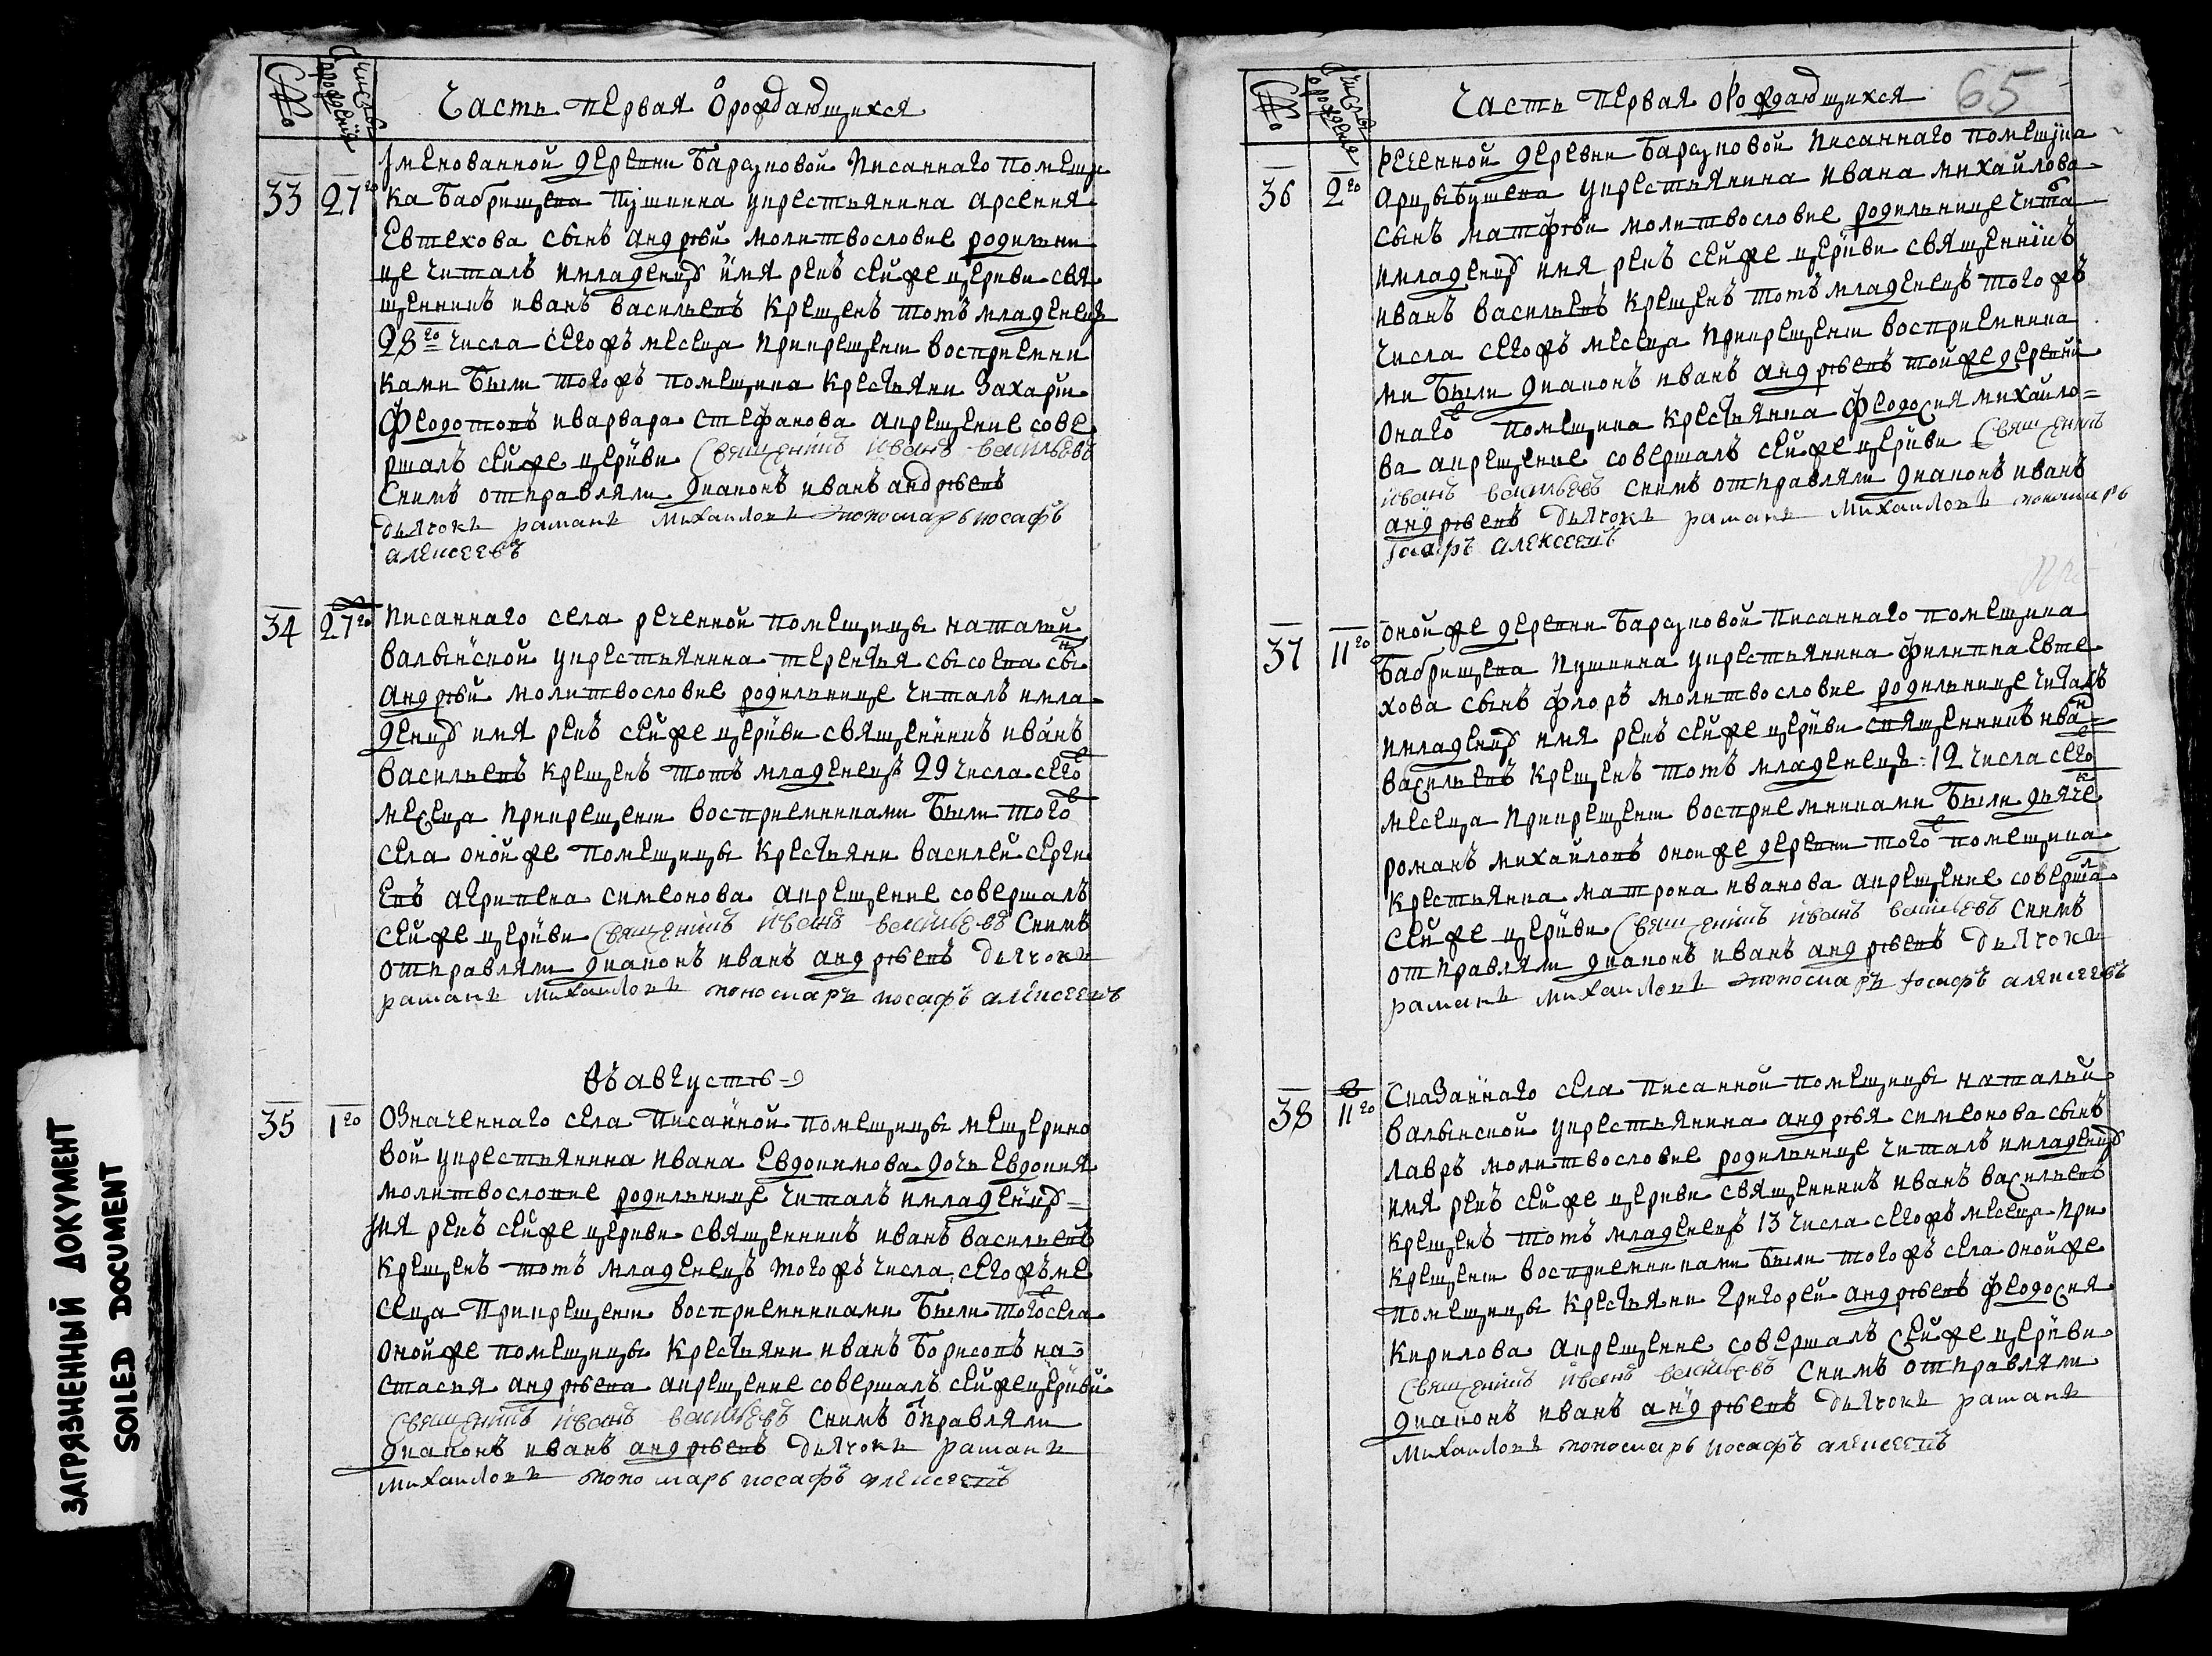 №
Числа рождения
Часть первая о рождающихся
Именованной деревни Барсуковой писаннаго помещи
33
27го
ка Бабрищева Пушкина у крестьянина Арсения
Евтехова сынъ Андрѣй молитвословие родильни
це читалъ и младенцу имя рекъ сей же церкви свя
щенникъ Иванъ Васильевъ крещенъ тотъ младенецъ
28го числа сегожъ месеца при крещени восприемни
ками были тогожъ помещика крестьяни Захари
Федотовъ и Варвара Стефанова а крещение сове
ршалъ сей же церкви Священникъ Иванъ Васильевъ
с нимъ отправляли диаконъ Иванъ Андрѣевъ
дьячокъ Раманъ Михаиловъ пономарь Иосафъ
Алексеевъ
34
27го
Писаннаго села реченной помещицы Натальи
Валынской у крестьянина Терентья Сысоева сынъ
Андрѣй молитвословие родильнице читалъ и мла
денцу имя рекъ сей же церкви священникъ Иванъ
Васильевъ крещенъ тотъ младенецъ 29 числа сего
месеца при крещени восприемниками были того
села оной же помещицы крестьяни Василей Серге
евъ Агрипена Симеонова а крещение совершалъ
сей же церкви Священникъ Иванъ Васильевъ с нимъ
отправляли диаконъ Иванъ Андрѣевъ дьячокъ
Раманъ Михаиловъ пономаръ Иосафъ Алексеевъ
Въ августѣ
35
1го
Означеннаго села писанной помещицы Мещерино
вой у крестьянина Ивана Евдокимова дочь Евдокия
молитвословие родильнице читалъ и младенцу
имя рекъ сей же церкви священникъ Иванъ Васильевъ
крещенъ тотъ младенецъ тогожъ числа сегожъ ме
сеца при крещени восприемниками были того села
оной же помещицы крестьяни Иванъ Борисовъ На
стасья Андрѣева а крещение совершалъ сей же церкви
Священникъ Иванъ Васильевъ с нимъ отправляли
диаконъ Иванъ Андрѣевъ дьячокъ Раманъ
Михаиловъ пономарь Иосафъ Алексеевъ
№
Числа рождения
Часть первая о рождающихся
65
Реченной деревни Барсуковой писаннаго помещика
36
2го
Арцыбушева у крестьянина Ивана Михайлова
сынъ Матфѣй молитвословие родильнице чита
и младенцу имя рекъ сей же церкви священникъ
Иванъ Васильевъ крещенъ тотъ младенецъ тогожъ
числа сегожъ месеца при крещени восприемника
ми были диаконъ Иванъ Андрѣевъ той же деревни
онаго помещика крестьянка Феодосия Михайло=
ва а крещение совершалъ сей же церкви Священникъ
Иванъ Васильевъ с нимъ отправляли диаконъ Иванъ
Андрѣевъ дьячокъ Раманъ Михаиловъ пономарь
Иосафъ Алексеевъ
37
11го
Оной же деревни Барсуковой писаннаго помещика
Бабрищева Пушкина у крестьянина Филипа Евте
хова сынъ Флоръ молитвословие родильнице читалъ
и младенцу имя рекъ сей же церкви священникъ Иванъ
Васильевъ крещенъ тотъ младенецъ 12 числа сего
месеца при крещени восприемниками были дьячекъ
Романъ Михайловъ оной же деревни того помещика
крестьянка Матрона Иванова а крещение совершалъ
сей же церкви Священникъ Иванъ Васильевъ с нимъ
отправляли диаконъ Иванъ Андрѣевъ дьячокъ
Раманъ Михаиловъ пономаръ Иосафъ Алексеевъ
38
11го
Сказаннаго села писанной помещицы Натальи
Валынской у крестьянина Андрѣя Симеонова сынъ
Лавръ молитвословие родильнице читалъ и младенцу
имя рекъ сей же церкви священникъ Иванъ Васильевъ
крещенъ тотъ младенецъ 13 числа сегожъ месеца при
крещени восприемниками были тогожъ села оной же
помещицы крестьяни Григорей Андрѣевъ Феодосия
Кирилова а крещение совершалъ сей же церкви
Священникъ Иванъ Васильевъ с нимъ отправляли
диаконъ Иванъ Андрѣевъ дьячокъ Раманъ
Михаиловъ пономарь Иосафъ Алексеевъ
ЗАГРЯЗНЕННЫЙ ДОКУМЕНТ
SOILED DOCUMENT